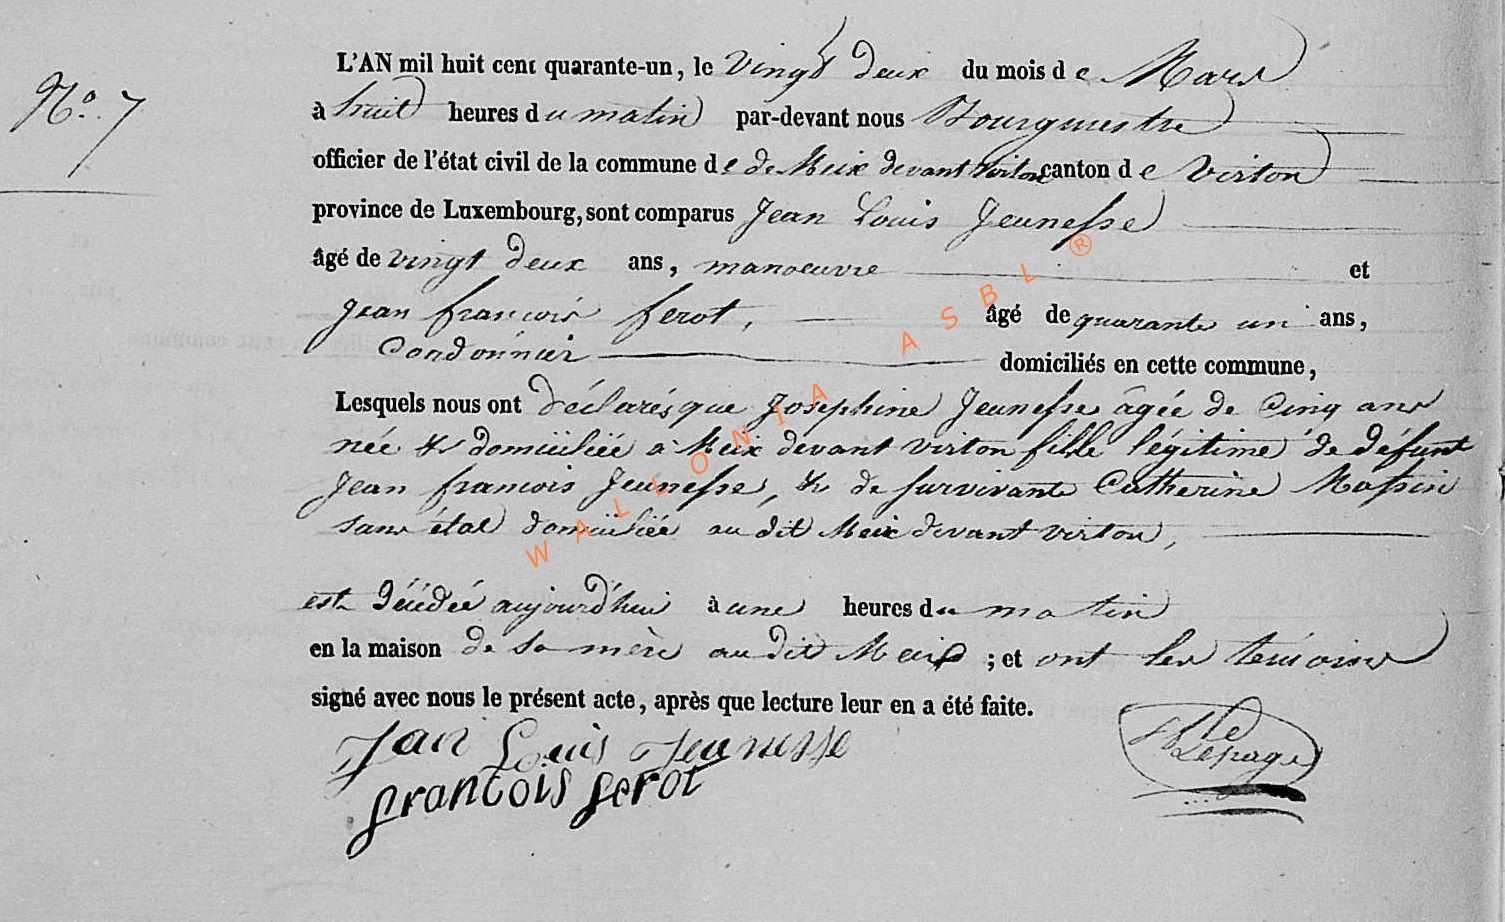 N.º 7
L'AN mil huit cent quarante-un, le vingt deux du mois de Mars
à huit heures du matin par-devant nous Bourgmestre
officier de l'état civil de la commune de de Meix devant virton canton de Virton
province de Luxembourg, sont comparus Jean Louis Jeunesse
âgé de vingt deux ans, manoeuvre et
Jean françois ferot, âgé de quarante un ans,
Cordonnier domiciliés en cette commune,
Lesquels nous ont déclarés que Josephine Jeunesse âgée de Cinq ans
née & domiciliée à Meix devant virton fille légitime de défunt
Jean francois Jeunesse, & de survivante Catherine Massin
sans état domiciliée au dit Meix devant virton,
est décédée aujourd'hui à une heures du matin
en la maison de sa mère au dit Meix ; et ont les témoins
signé avec nous le présent acte, après que lecture leur en a été faite.
Jan Louis Jeunesse
francois ferot
Lepage
WALLONIA ASBL ®